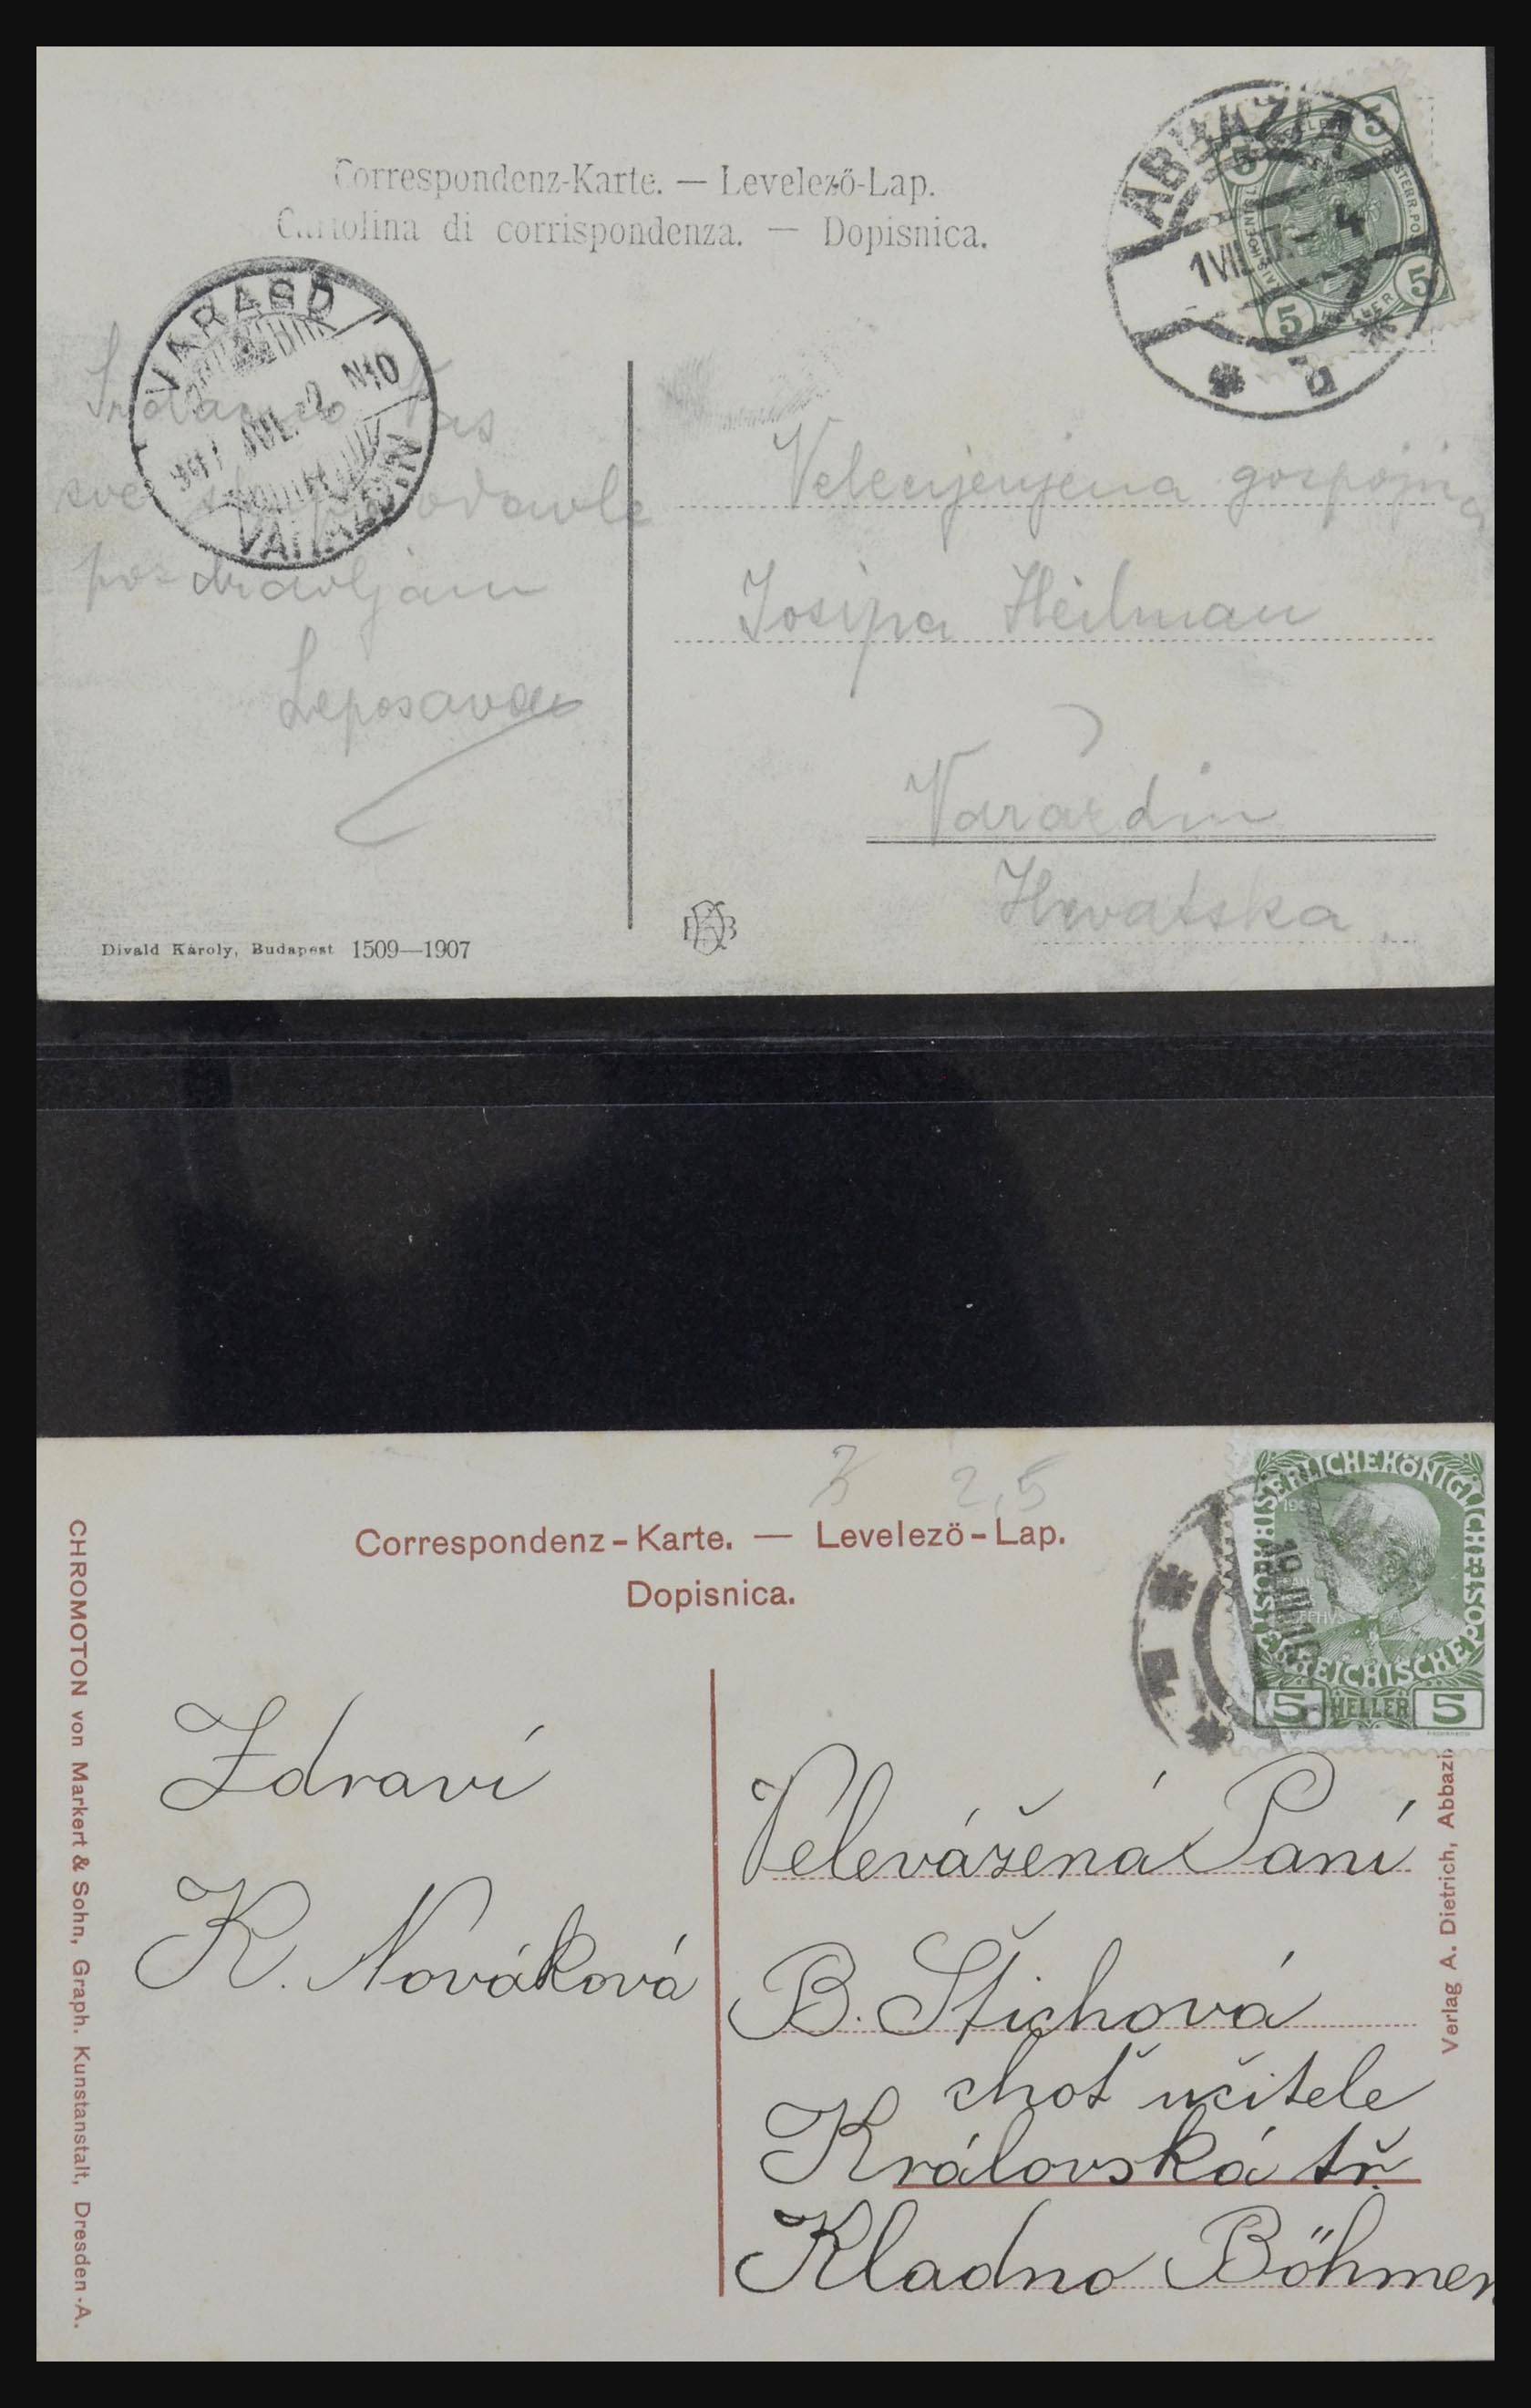 Correspondenz-Karte. — Levelező-Lap.
Cartolina di corrispondenza. — Dopisnica.
ABBAZIA
1 VII
4
5 5 5 5
HELLER
VARASD
907 JUL -2 N10
VARAŽDIN
Vas
sve
pozdravljam
Leposava
Velecijenjena gospojina
Josipa Heilman
Varaždin
Hrvatska
Divald Károly, Budapest 1509—1907
3 2,5
Correspondenz-Karte. — Levelezö-Lap.
Dopisnica.
KAISERLICHEKÖNIGLICHEPOST
ÖSTERREICHISCHE
5 HELLER 5
CHROMOTON von Markert & Sohn, Graph. Kunstanstalt, Dresden-A.
Zdraví
K. Nováková
Velevážená Paní
B. Štichová
choť učitele
Královská tř.
Kladno Böhmen
Verlag A. Dietrich, Abbazi